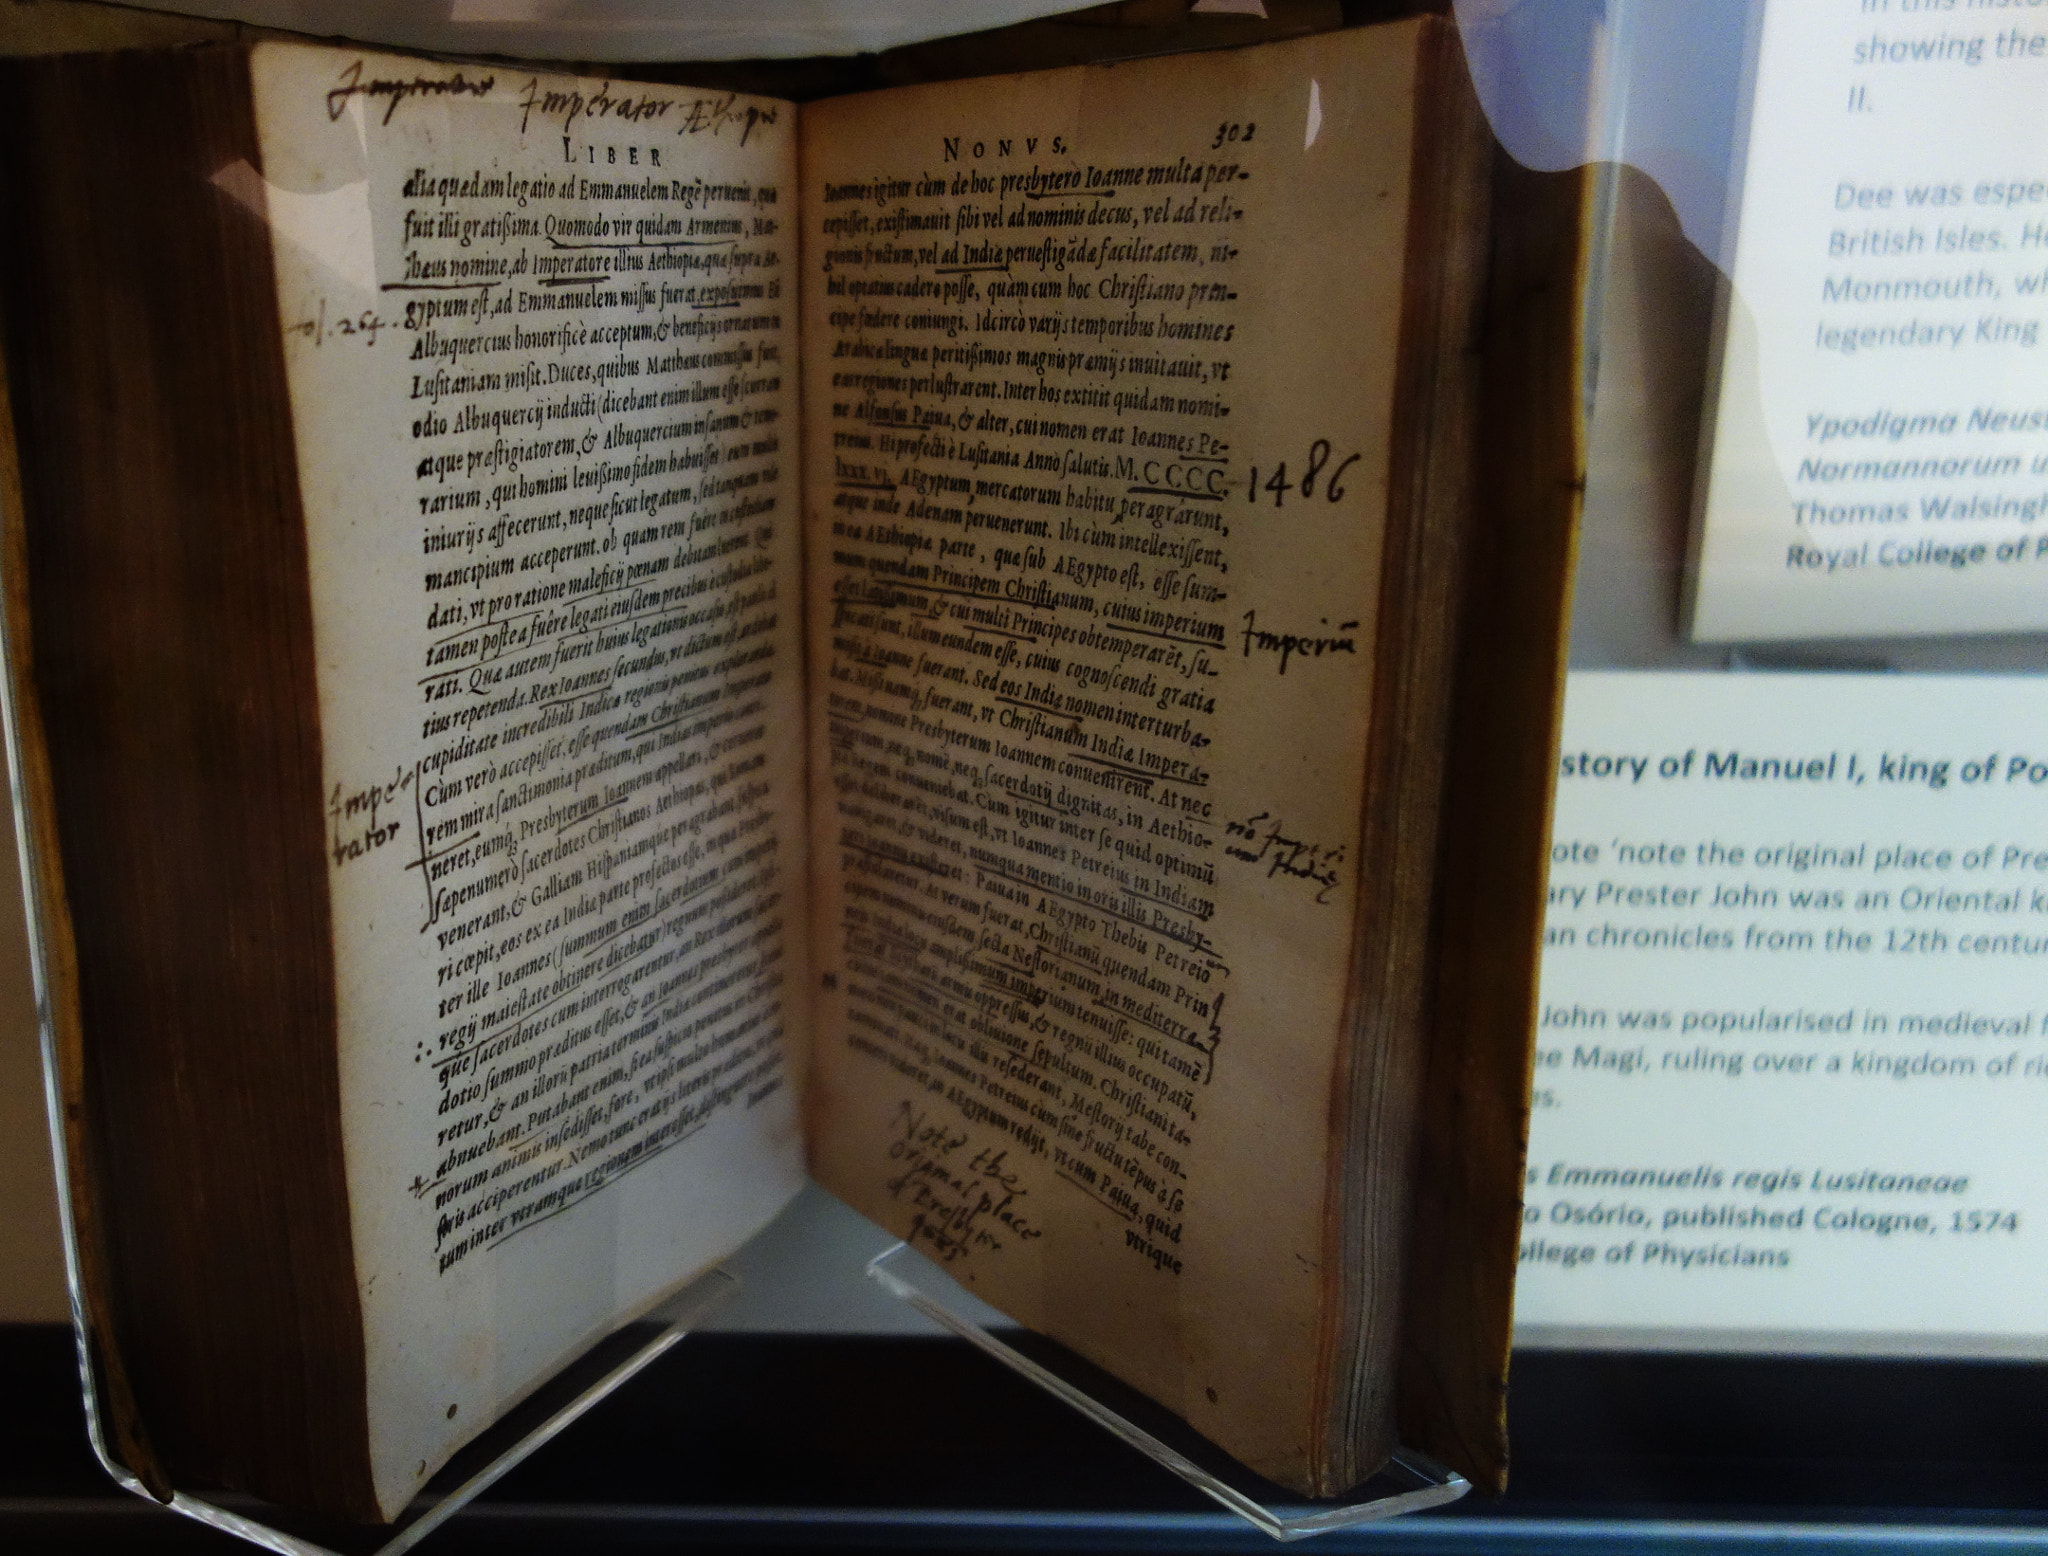 Imperator Æthiopiæ
LIBER
alia quædam legatio ad Emmanuelem Regē peruenit, quæ
fuit illi gratißima. Quomodo vir quidam Armenius, Mat-
thæus nomine, ab Imperatore illius Aethiopiæ, quæ supra Ae-
gyptum est, ad Emmanuelem missus fuerat, exposuimus. Eū
fol. 264.
Albuquercius honorificè acceptum, & beneficijs ornatum in
Lusitaniam misit. Duces, quibus Matthæus commissus fuit,
odio Albuquercij inducti (dicebant enim illum esse scurram
atque præstigiatorem, & Albuquercium insanum & teme-
rarium, qui homini leuißimo fidem habuisset) eum multis
iniurijs affecerunt, neque sicut legatum, sed tanquam vile
mancipium acceperunt. ob quam rem fuêre in
dati, vt pro ratione maleficij pœnam debitam
tamen postea fuêre legati eiusdem precibus è custodia
rati. Quæ autem fuerit huius legationis occasio, est paulò
tius repetenda. Rex Ioannes secundus, vt dictum est,
cupiditate incredibili Indicæ regionis penitus explorandæ.
Cùm verò accepisset, esse quendam Christianum Imperato-
Impe-
rator
rem mira sanctimonia præditum, qui Indiæ imperio
neret, eumq́; Presbyterum Ioannem appellari, &
sæpenumerò sacerdotes Christianos Aethiopas, qui
venerant, & Galliam Hispaniamque peragrabant,
ri cœpit, eos ex ea Indiæ parte profectos esse, in qua Presby-
ter ille Ioannes (summum enim sacerdotium cum imperij
regij maiestate obtinere dicebatur) regnum possideret.
que sacerdotes cum interrogarentur, an Rex illorum sacer-
dotio summo præditus esset, & an Ioannes presbyter
retur, & an illorū patria terminis Indiæ contineretur,
abnuebant. Putabant enim, si ea suspicio penitus in Christia-
norum animis insedisset, fore, vt ipsi multo
stris acciperentur. Nemo tunc
tum inter vtramque regionem interesset,
Ioannes
NONVS. 302
Ioannes igitur cùm de hoc presbytero Ioanne multa per-
cepisset, existimauit sibi vel ad nominis decus, vel ad reli-
gionis fructum, vel ad Indiæ peruestigādæ facilitatem, ni-
hil optatius cadere posse, quàm cum hoc Christiano prin-
cipe fœdere coniungi. Idcircò varijs temporibus homines
Arabicæ linguæ peritißimos magnis præmijs inuitauit, vt
eas regiones perlustrarent. Inter hos extitit quidam nomi-
ne Alfonsus Paiua, & alter, cui nomen erat Ioannes Pe-
treius. Hi profecti è Lusitania Anno salutis. M. CCCC.
1486
lxxx.vj. AEgyptum, mercatorum habitu peragrârunt,
atque inde Adenam peruenerunt. Ibi cùm intellexissent,
in ea AEthiopiæ parte, quæ sub AEgypto est, esse sum-
mum quendam Principem Christianum, cuius imperium
Imperiū
esset latißimum, & cui multi Principes obtemperarēt, su-
spicati sunt, illum eundem esse, cuius cognoscendi gratia
mißi a Ioanne fuerant. Sed eos Indiæ nomen interturba-
bat. Mißi namq́; fuerant, vt Christianum Indiæ Impera-
torem, nomine Presbyterum Ioannem conuenirent. At nec
imperium, neq; nomē, neq; sacerdotij dignitas, in Aethio-
piæ Regem conueniebat. Cùm igitur inter se quid optimū
esset deliberarēt, visum est, vt Ioannes Petreius in Indiam
nauigaret, & videret, nunquā mentio in oris illis Presby-
teri Ioannis existeret: Paiua in AEgypto Thebis Petreiō
præstolaretur. At verum fuerat, Christianū quendam Prin
cipem eiusdem secta Nestorianum in mediterra-
neis Indiæ locis amplißimum imperium tenuisse: qui tamē
armis oppressus, & regnū illius occupatū,
nomen erat obliuione sepultum. Christiani ta-
men in locis illis resederant, Nestorij tabe con-
taminati. Itaq; Ioannes Petreius cùm sine fructu tēpus à se
in AEgyptum redijt, vt cum Paiua, quid
vtrique
Note the
original place
of Presbyter
In this histo
showing the
II.
Dee was espe
British Isles. He
Monmouth, wh
legendary King
Ypodigma Neust
Normannorum u
Thomas Walsingh
Royal College of P
story of Manuel I, king of Po
ote ‘note the original place of Pre
ary Prester John was an Oriental k
an chronicles from the 12th centu
John was popularised in medieval f
e Magi, ruling over a kingdom of ri
es.
s Emmanuelis regis Lusitaneae
o Osório, published Cologne, 1574
ollege of Physicians